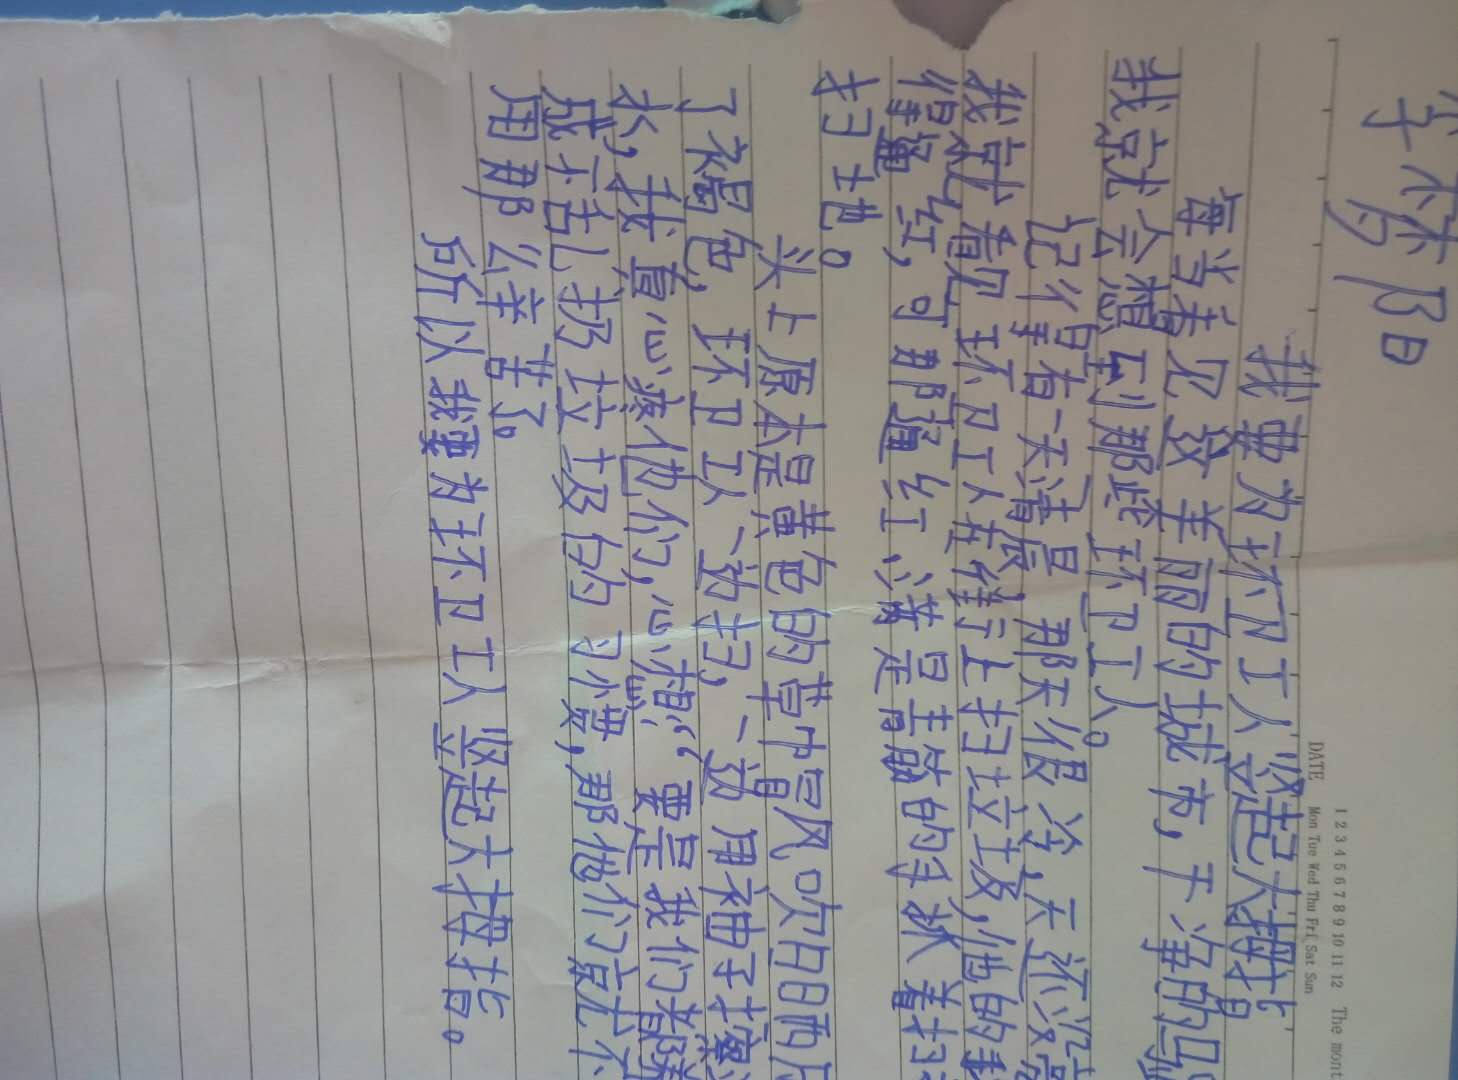 DATE
1 2 3 4 5 6 7 8 9 10 11 12 The mont
Mon Tue Wed Thu Fri Sat Sun
我要为环卫工人竖起大拇指
每当看见这美丽的城市，干净的
我就会想到那些环卫工人。
记得有一天清晨，那天很冷，天还没亮
我就看见环卫工人在街上扫垃圾，他的
得通红，可那通红、满是的手抓着扫
扫地。
头上原本是黄色的草帽风吹日晒
了褐色，环卫工人一边扫，一边用袖子擦
水，我真心疼他们，心想：“要是我们都
成不乱扔垃圾的习惯，那他们就不
用那么辛苦了。
所以我要为环卫工人竖起大拇指。